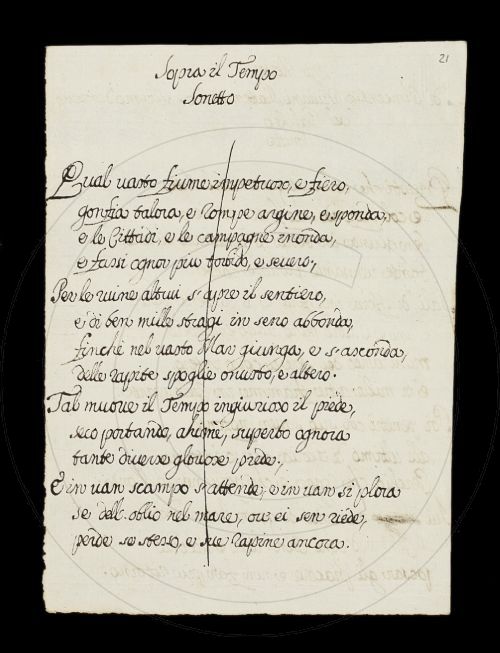 21
Sopra il Tempo
Sonetto
Qual uasto fiume impetuoso, e fiero,
gonfia talora, e rompe argine, e sponda,
e le Cittadi, e le campagne inonda,
e farsi ognor più torbido, e seuero;
Per le ruine altrui s'apre il sentiero,
e di ben mille stragi in seno abbonda,
finchè nel uasto Mar giunga, e s'asconda,
delle rapite spoglie onusto, e altero.
Tal muoue il Tempo ingiurioso il piede,
seco portando, ahimè, superbo ognora
tante diuerse gloriose prede;
E in uan scampo s'attende, e in uan si plora
se dell'oblio nel mare, ou' ei sen riede,
perde se stesso, e sue rapine ancora.